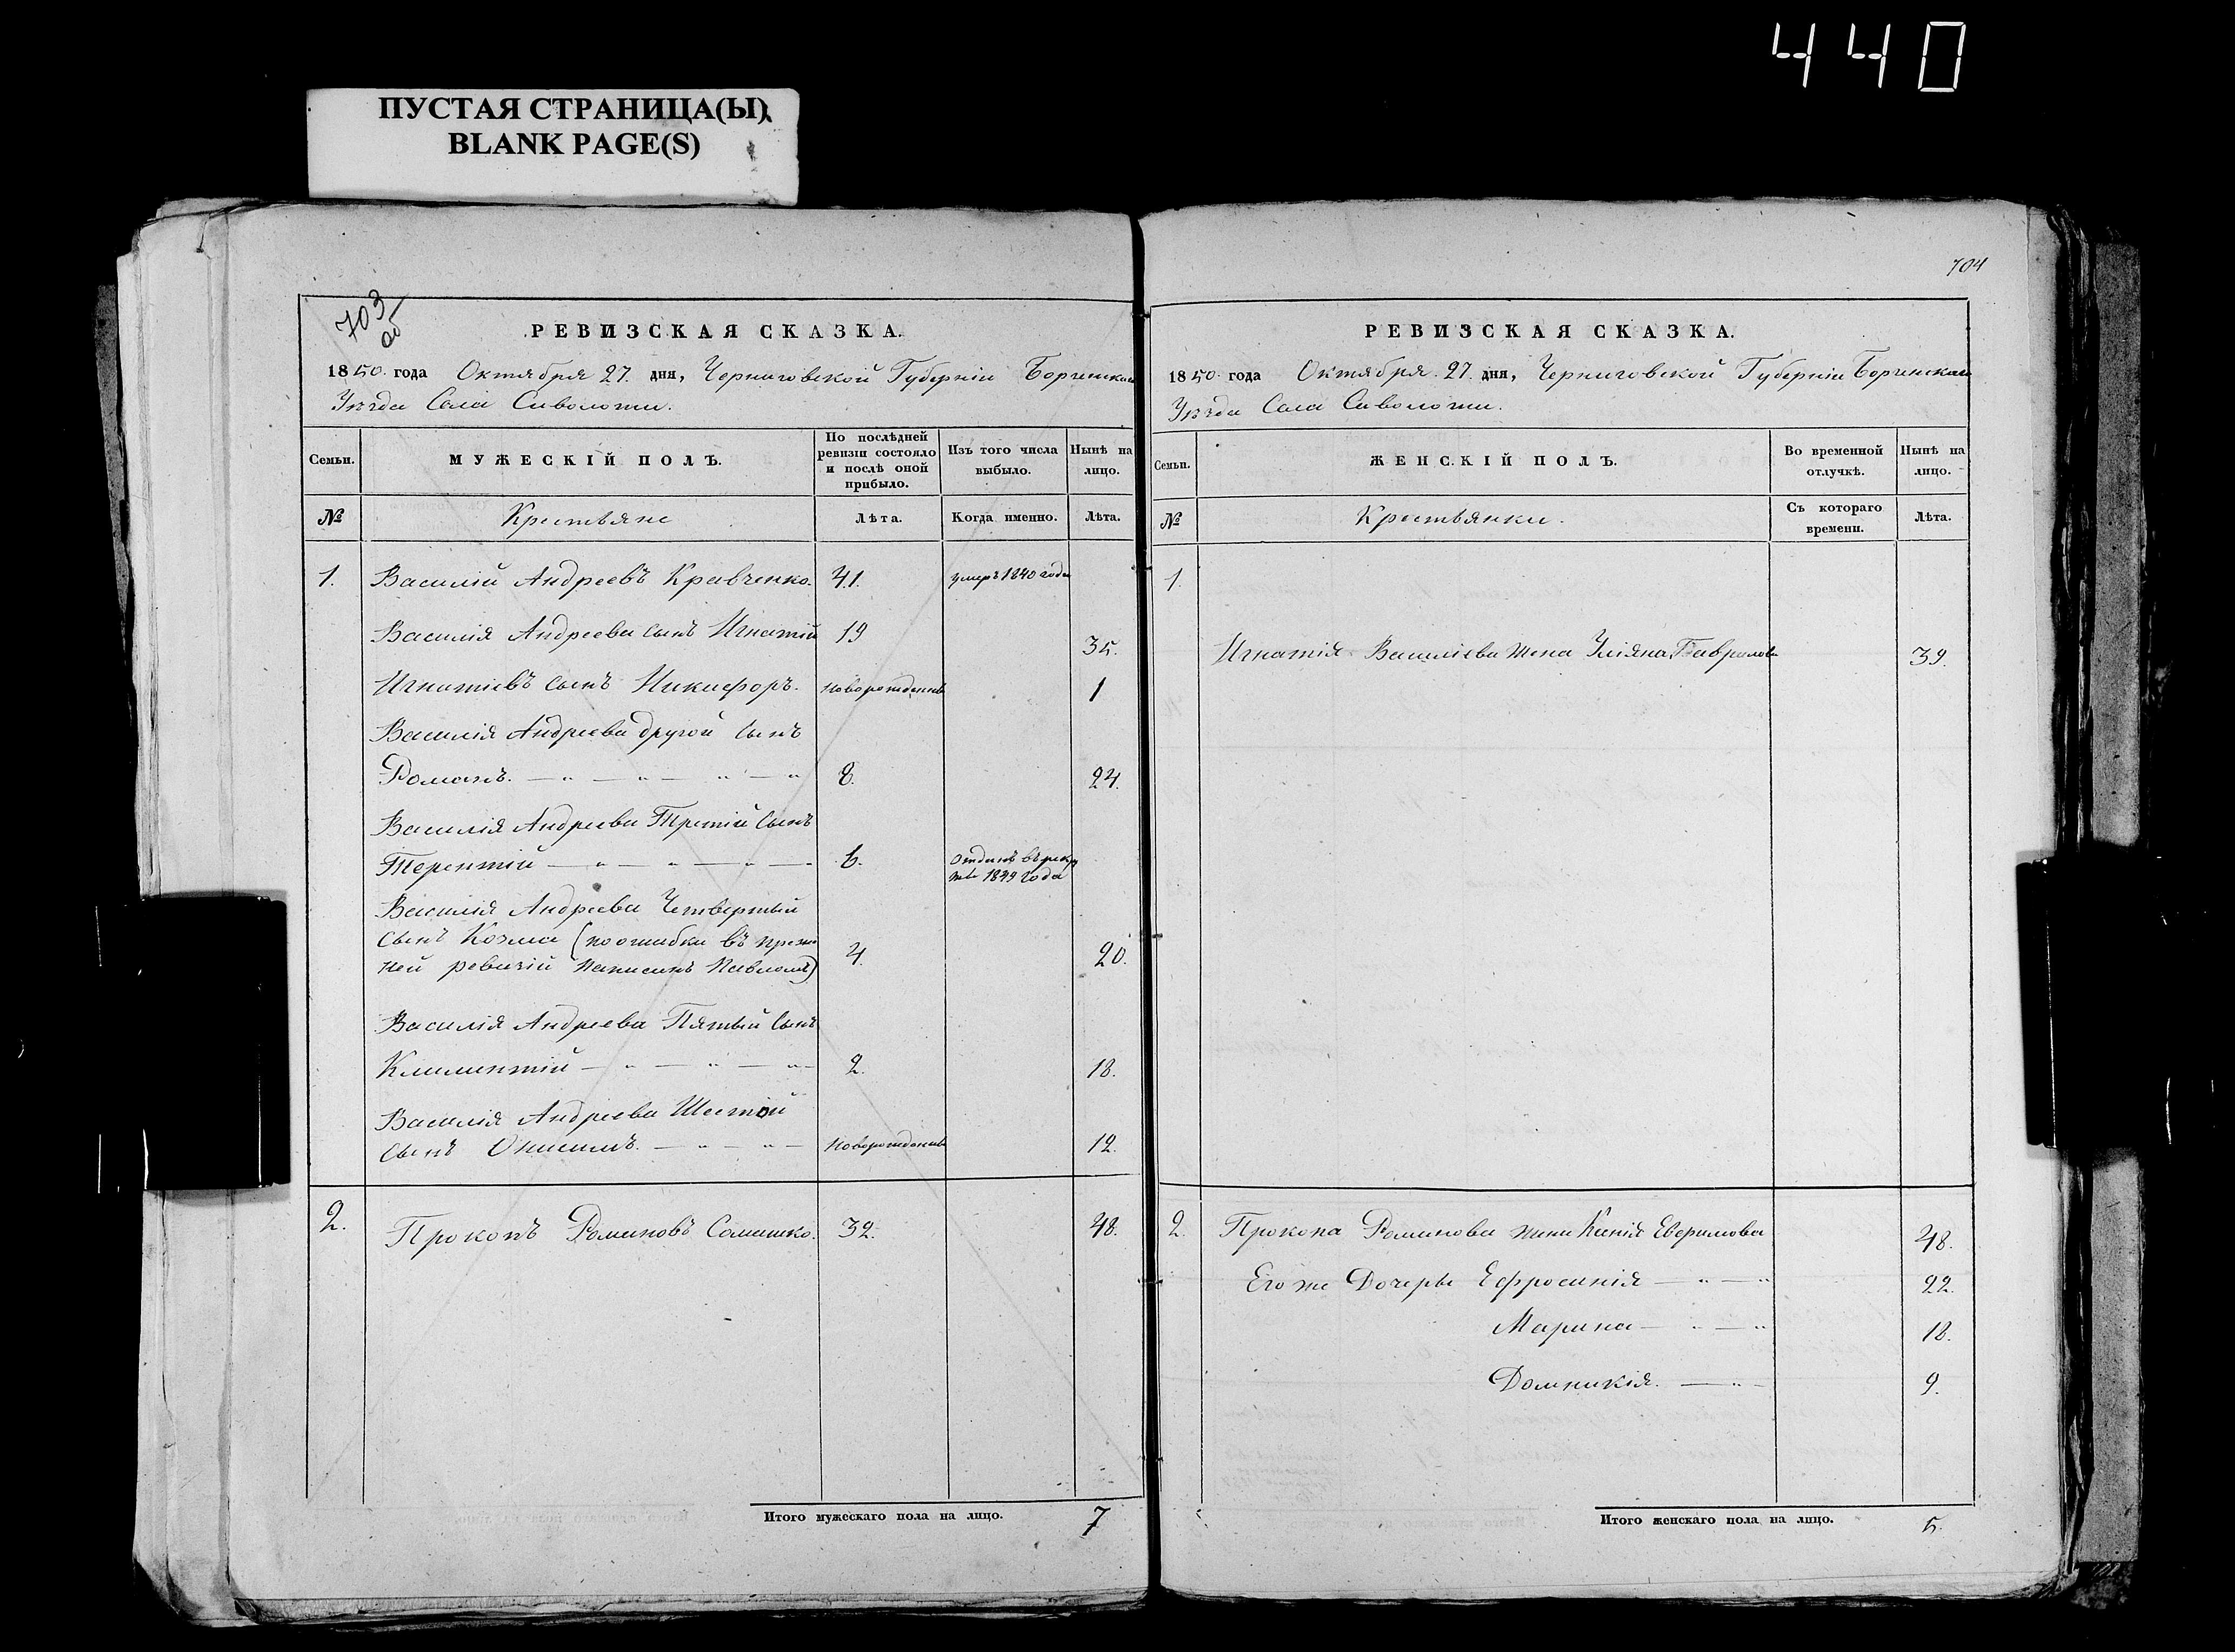 440
ПУСТАЯ СТРАНИЦА(Ы)
BLANK PAGE(S)
703
об
РЕВИЗСКАЯ СКАЗКА.
1850 года Октября 27. дня, Черниговской Губерніи Борзенскаго
Уѣзда Села Сиволожи.
Семьи.
МУЖЕСКІЙ ПОЛЪ.
По послѣдней ревизіи состояло и послѣ оной прибыло.
Изъ того числа выбыло.
Нынѣ на лицо.
№
Крестьяне
Лѣта.
Когда именно.
Лѣта.
1. Василій Андреевъ Кравченко. 41. умеръ 1840 года
Василія Андреева сынъ Игнатій 19 35.
Игнатіевъ сынъ Никифоръ. новорожденъ 1
Василія Андреева другой сынъ
Романъ. — " — " — " — " 8. 24.
Василія Андреева Третій сынъ
Терентій — " — " — " — 6. Отданъ въ рекру
ты 1849 года
Василія Андреева Четвертый
сынъ Козма (по ошибки въ преж
ней ревизіи написанъ Павломъ) 4. 20.
Василія Андреева Пятый сынъ
Климентій — " — " — " — 2. 18.
Василія Андреева Шестой
сынъ Онисимъ. — " — " — новорожденъ 12.
2. Прокопъ Романовъ Самашко. 32. 48.
Итого мужескаго пола на лицо. 7
704
РЕВИЗСКАЯ СКАЗКА.
1850 года Октября 27 дня, Черниговской Губерніи Борзенскаго
Уѣзда Села Сиволожи.
Семьи.
ЖЕНСКІЙ ПОЛЪ.
Во временной отлучкѣ.
Нынѣ на лицо.
№
Крестьянки.
Съ котораго времени.
Лѣта.
1.
Игнатія Василіева жена Уліяна Гаврилова 39.
2. Прокопа Романова жена Ксенія Ефримова 48.
Его же Дочеры Ефросинія — " — " 22.
Марина — " — " 18.
Домникія. — " — 9.
Итого женскаго пола на лицо. 5.